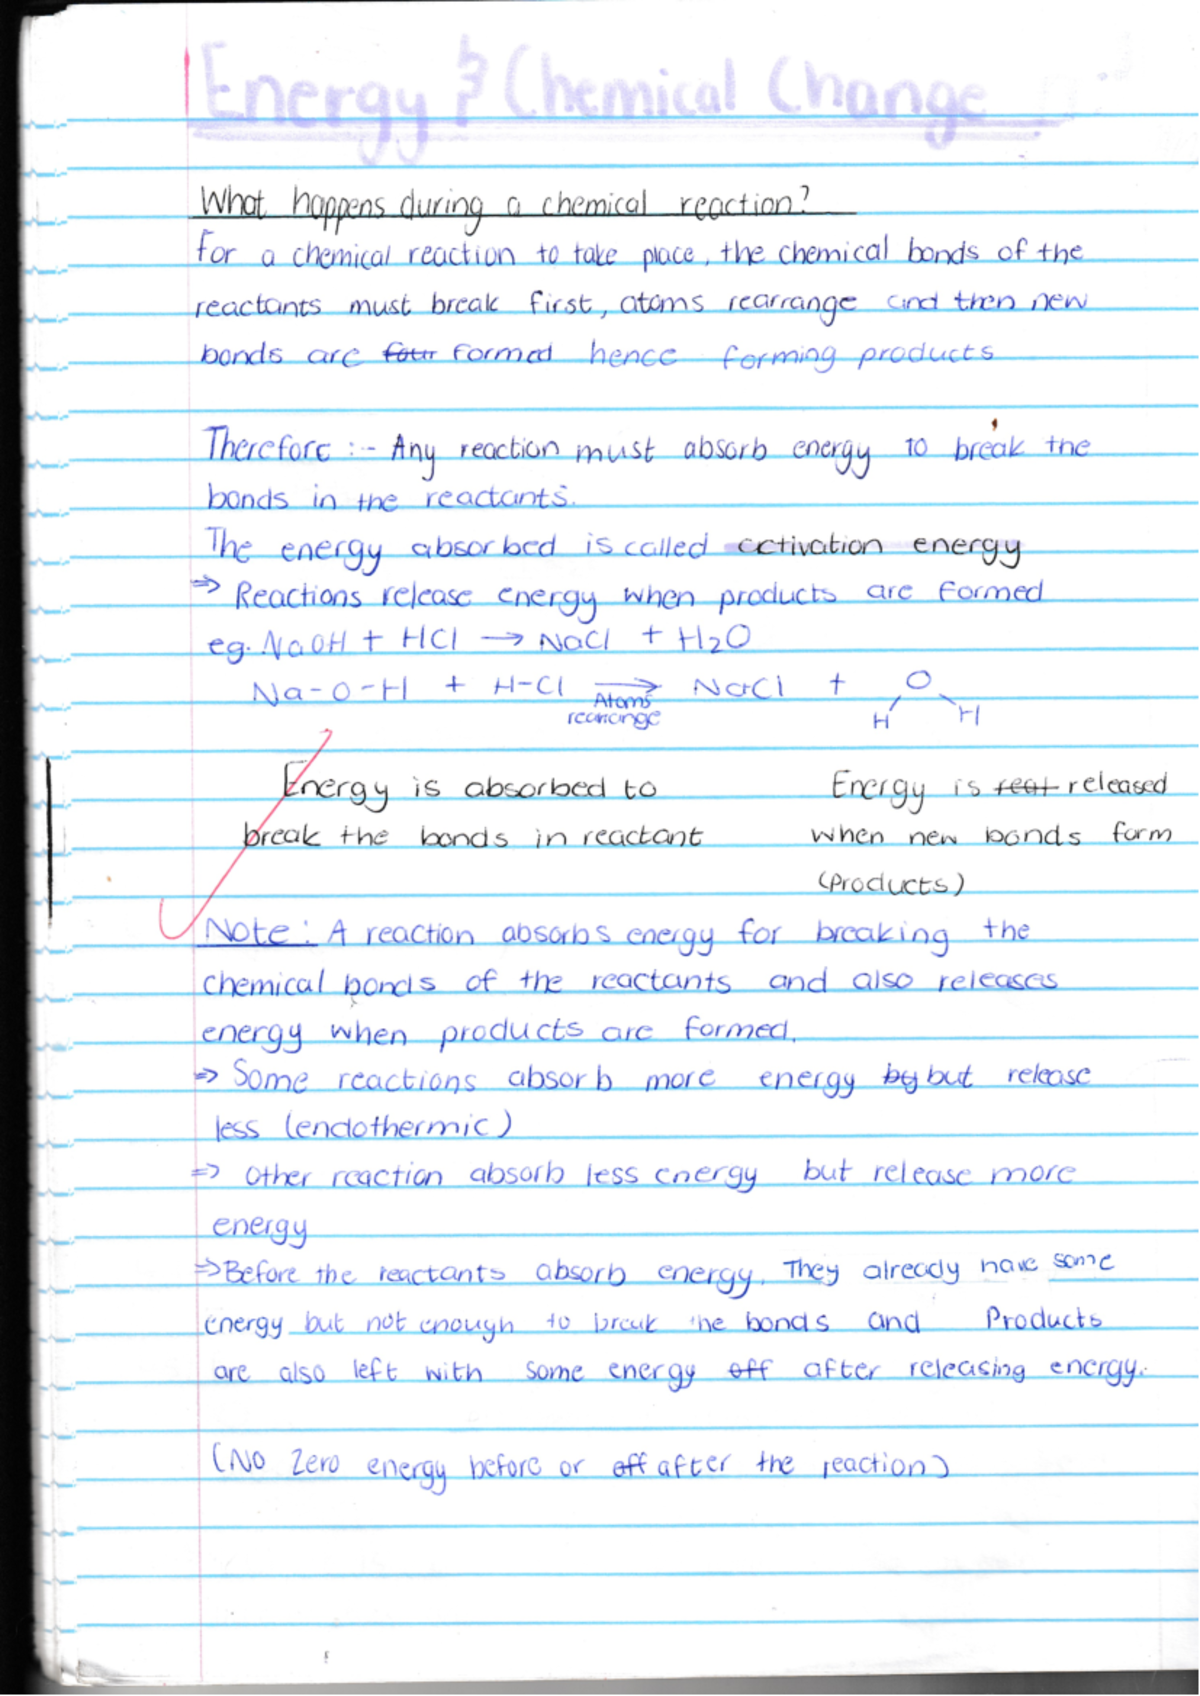 Energy & Chemical Change
What happens during a chemical reaction?
For a chemical reaction to take place, the chemical bonds of the
reactants must break first, atoms rearrange and then new
bonds are ~~four~~ formed hence forming products
Therefore :- Any reaction must absorb energy to break the
bonds in the reactants.
The energy absorbed is called activation energy
⇒ Reactions release energy when products are formed
eg. NaOH + HCl → NaCl + H₂O
Na-O-H + H-Cl → NaCl + O
Atoms
rearrange
H H
Energy is absorbed to Energy is ~~reat~~ released
break the bonds in reactant when new bonds form
(Products)
Note: A reaction absorbs energy for breaking the
chemical bonds of the reactants and also releases
energy when products are formed.
⇒ Some reactions absorb more energy ~~by~~ but release
less (endothermic)
⇒ Other reaction absorb less energy but release more
energy
⇒ Before the reactants absorb energy. They already have some
energy but not enough to break the bonds and Products
are also left with some energy ~~off~~ after releasing energy.
(No Zero energy before or ~~off~~ after the reaction)